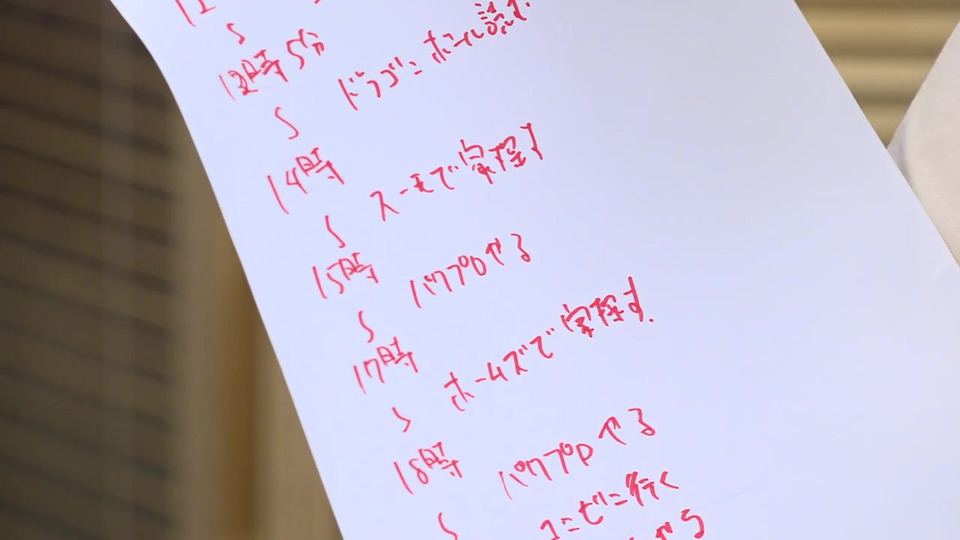 12時5分
ドラゴンボール読む
14時
スーモで家探す
15時
パワプロやる
17時
ホームズで家探す.
18時
パワプロやる
コンビニ行く
やる